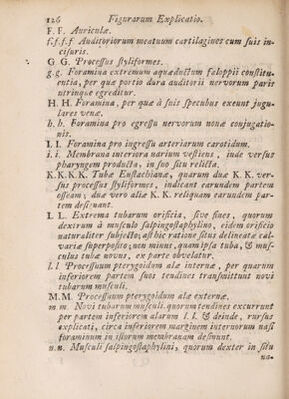 126 Figurarum Explicatio.
F. F. Auriculæ.
f.f.f.f Auditoriorum meatuum cartilagines cum suis in-
cisuris.
G G. Processus styliformes.
g.g. Foramina extremum aquæductum faloppii constitu-
entia, per quæ portio dura auditorii nervorum paris
utrinque egreditur.
H. H. Foramina, per quæ à suis specubus exeunt jugu-
lares venæ.
h. h. Foramina pro egressu nervorum nonæ conjugatio-
nis.
I. I. Foramina pro ingressu arteriarum carotidum.
i. i. Membrana interiora narium vestiens, inde versus
pharyngem producta, in suo situ relicta.
K.K.K.K. Tubæ Eustachianæ, quarum duæ K. K. ver-
sus processus styliformes, indicant earundem partem
osseam; duæ vero aliæ K. K. reliquam earundem par-
tem definunt.
L L. Extrema tubarum orificia, sive sines, quorum
dextrum à musculo salpingostaphylino, eidem orificio
naturaliter subjecto; ast hic ratione situs delineatæ cal-
variæ superposito; non minus, quam ipsa tuba, & mus-
culus tubæ novus, ex parte obvelatur.
l. l Processuum pterygoidum alæ internæ, per quarum
inferiorem partem suos tendines transmittunt novi
tubarum musculi.
M. M. Processuum pterygoidum alæ externæ.
m m. Novi tubarum musculi. quorum tendines excurrunt
per partem inferiorem alarum l. l. & deinde, rursus
explicati, circa inferiorem marginem internorum nasi
foraminum in istorum membranam desinunt.
n.n. Musculi salpingostaphylini, quorum dexter in situ
na-